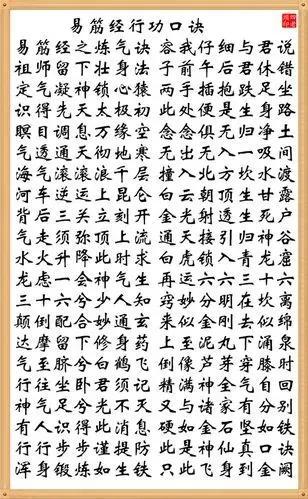 易筋经行功口诀
易筋经之炼气诀 容我仔细与君说
祖师留下壮身法 子前午后君休错
定气凝神锁心猿 两手插抱跌足坐
识得先天太极缘 此处便是生身路
瞑目调息万缘空 念念俱无归净土
气透通天彻地寒 无出无入一吸间
海气滚滚浪千层 撞入坎水渡
河车逆运上昆仑 白云朝顶生甘露
背后三关立刻开 金光射透生死户
气走须弥顶上流 通天接引归神谷
水火升降此时求 虎锁青龙窟
龙虎一会神气生 再六六三十六
三十六兮少人知 窍妙分明在坎离
颠倒配合妙通玄 又如金刚去似绵
达摩留下修身药 上至泥丸下涌泉
行至脐兮白鹤飞 倒像芦芽穿膝时
行住坐卧君须记 精满神全气自回
神气足兮光不灭 又与诸家有分别
有人识得此消息 硬如金石坚如铁
行行步步谨提防 此是神仙真口诀
浑身锻炼如生铁 此是飞身金